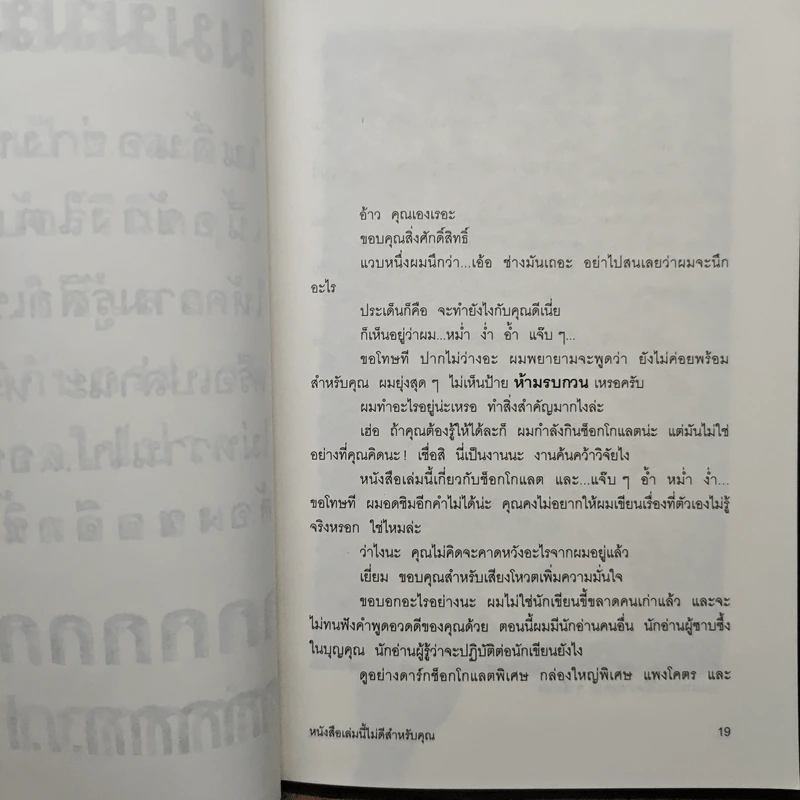 อ้าว คุณเองเรอะ
ขอบคุณสิ่งศักดิ์สิทธิ์
แวบหนึ่งผมนึกว่า...เอ้อ ช่างมันเถอะ อย่าไปสนเลยว่าผมจะนึก
อะไร
ประเด็นก็คือ จะทำยังไงกับคุณดีเนี่ย
ก็เห็นอยู่ว่าผม...หม่ำ ง่ำ อ้ำ แจ๊บ ๆ...
ขอโทษที ปากไม่ว่างอะ ผมพยายามจะพูดว่า ยังไม่ค่อยพร้อม
สำหรับคุณ ผมยุ่งสุด ๆ ไม่เห็นป้าย ห้ามรบกวน เหรอครับ
ผมทำอะไรอยู่น่ะเหรอ ทำสิ่งสำคัญมากไงล่ะ
เฮ่อ ถ้าคุณต้องรู้ให้ได้ละก็ ผมกำลังกินช็อกโกแลตน่ะ แต่มันไม่ใช่
อย่างที่คุณคิดนะ! เชื่อสิ นี่เป็นงานนะ งานค้นคว้าวิจัยไง
หนังสือเล่มนี้เกี่ยวกับช็อกโกแลต และ...แจ๊บ ๆ อ้ำ หม่ำ ง่ำ...
ขอโทษที ผมอดชิมอีกคำไม่ได้น่ะ คุณคงไม่อยากให้ผมเขียนเรื่องที่ตัวเองไม่รู้
จริงหรอก ใช่ไหมล่ะ
ว่าไงนะ คุณไม่คิดจะคาดหวังอะไรจากผมอยู่แล้ว
เยี่ยม ขอบคุณสำหรับเสียงโหวตเพิ่มความมั่นใจ
ขอบอกอะไรอย่างนะ ผมไม่ใช่นักเขียนขี้ขลาดคนเก่าแล้ว และจะ
ไม่ทนฟังคำพูดอวดดีของคุณด้วย ตอนนี้ผมมีนักอ่านคนอื่น นักอ่านผู้ซาบซึ้ง
ในบุญคุณ นักอ่านผู้รู้ว่าจะปฏิบัติต่อนักเขียนยังไง
ดูอย่างดาร์กช็อกโกแลตพิเศษ กล่องใหญ่พิเศษ แพงโคตร และ
หนังสือเล่มนี้ไม่ดีสำหรับคุณ 19